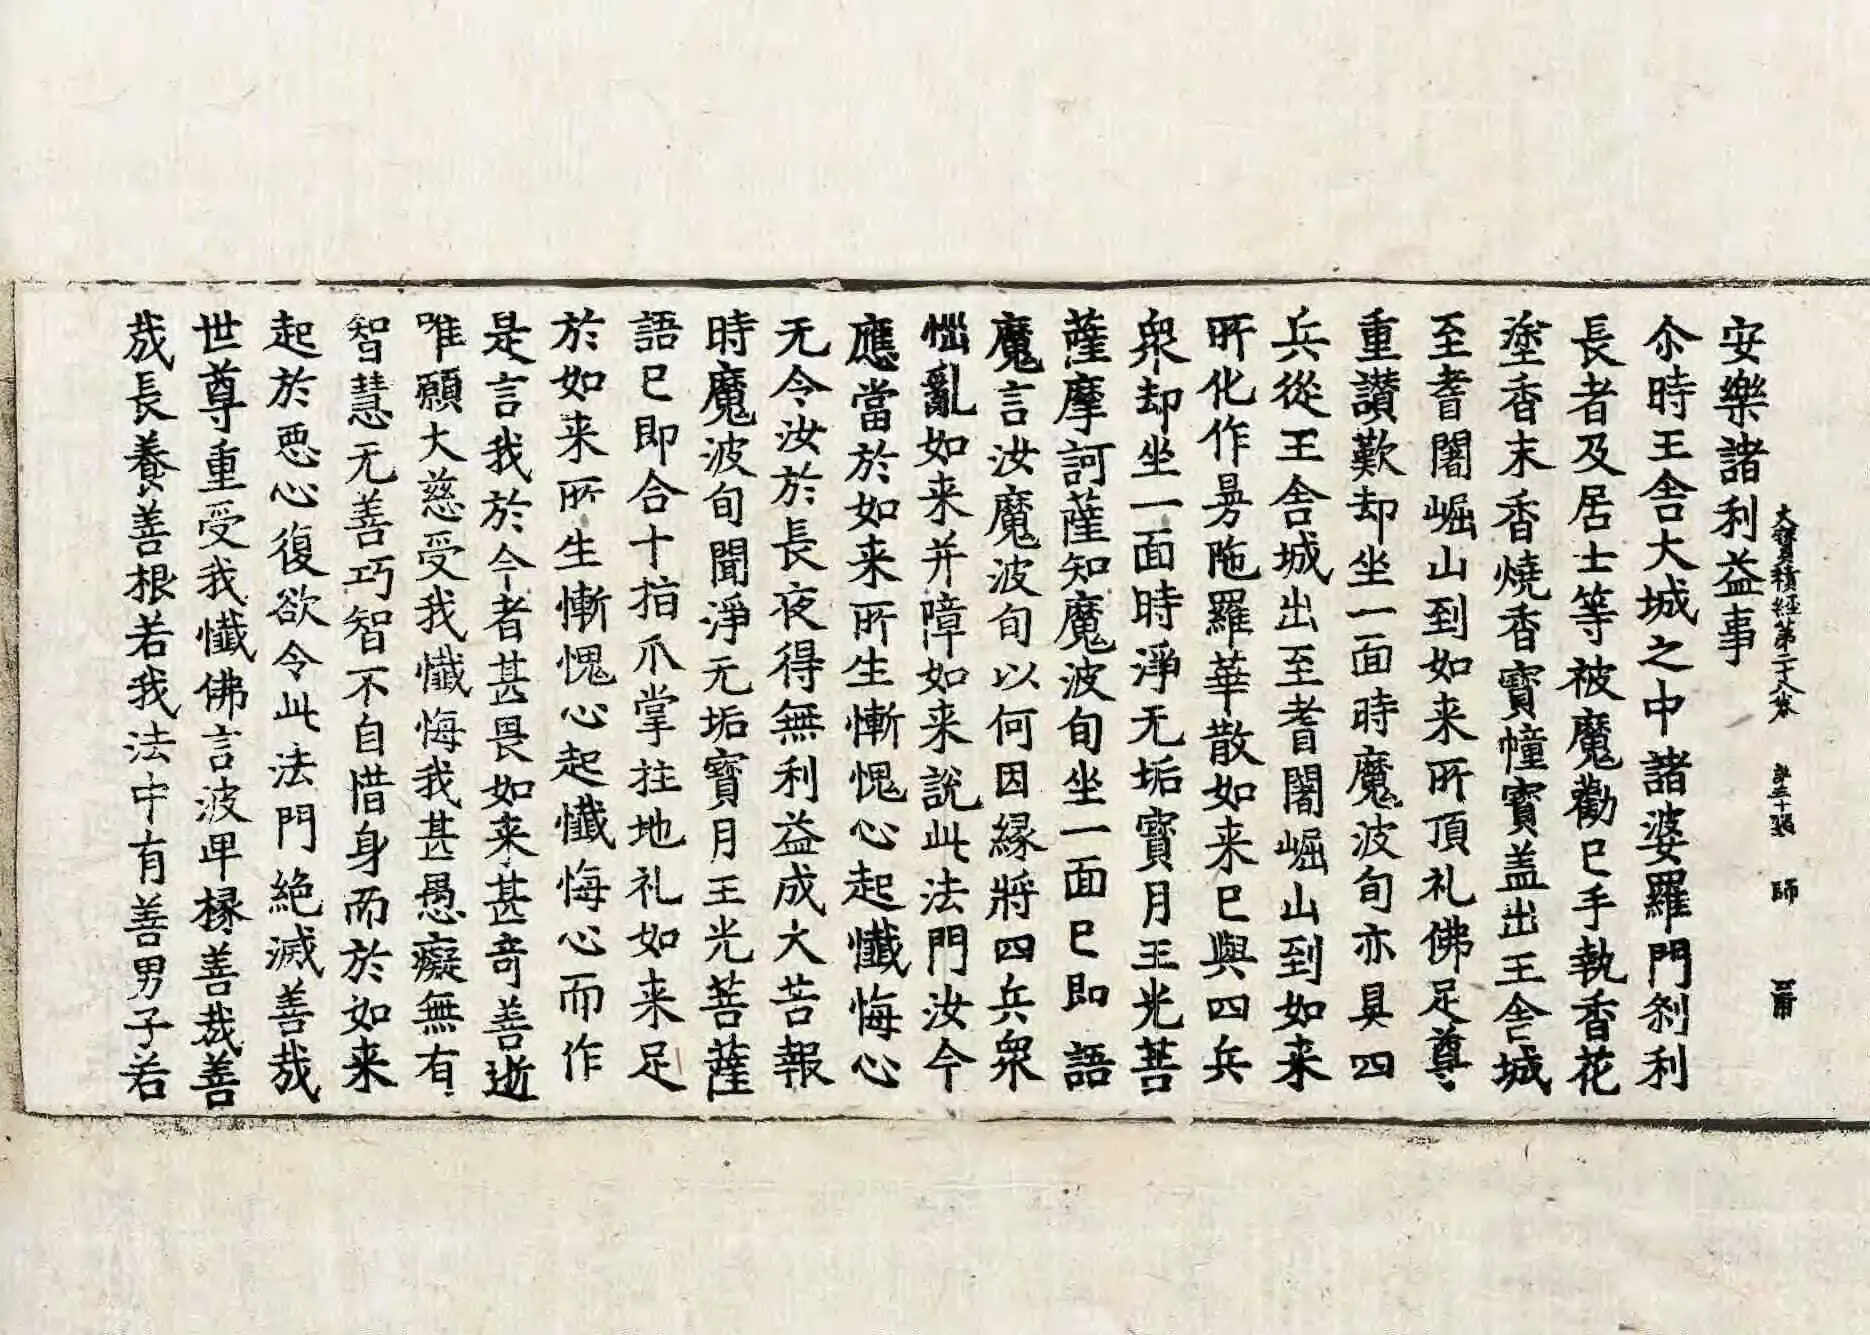 大寶積經第二十八卷 第三十張 師
安樂諸利益事
尒時王舍大城之中諸婆羅門刹利
長者及居士等被魔勸已手執香花
塗香末香燒香寶幢寶盖出王舍城
至耆闍崛山到如来所頂礼佛足尊
重讃歎却坐一面時魔波旬亦具四
兵從王舍城出至耆闍崛山到如来
所化作曼陁羅華散如来已與四兵
衆却坐一面時淨无垢寶月王光菩
薩摩訶薩知魔波旬坐一面已即語
魔言汝魔波旬以何因縁將四兵衆
惱亂如来并障如来説此法門汝今
應當於如来所生慚愧心起懺悔心
无令汝於長夜得無利益成大苦報
時魔波旬聞淨无垢寶月王光菩薩
語已即合十指爪掌拄地礼如来足
於如来所生慚愧心起懺悔心而作
是言我於今者甚畏如来甚奇善逝
唯願大慈受我懺悔我甚愚癡無有
智慧无善巧智不自惜身而於如来
起於悪心復欲令此法門絶滅善哉
世尊重受我懺佛言波卑椽善哉善
哉長養善根若我法中有善男子若